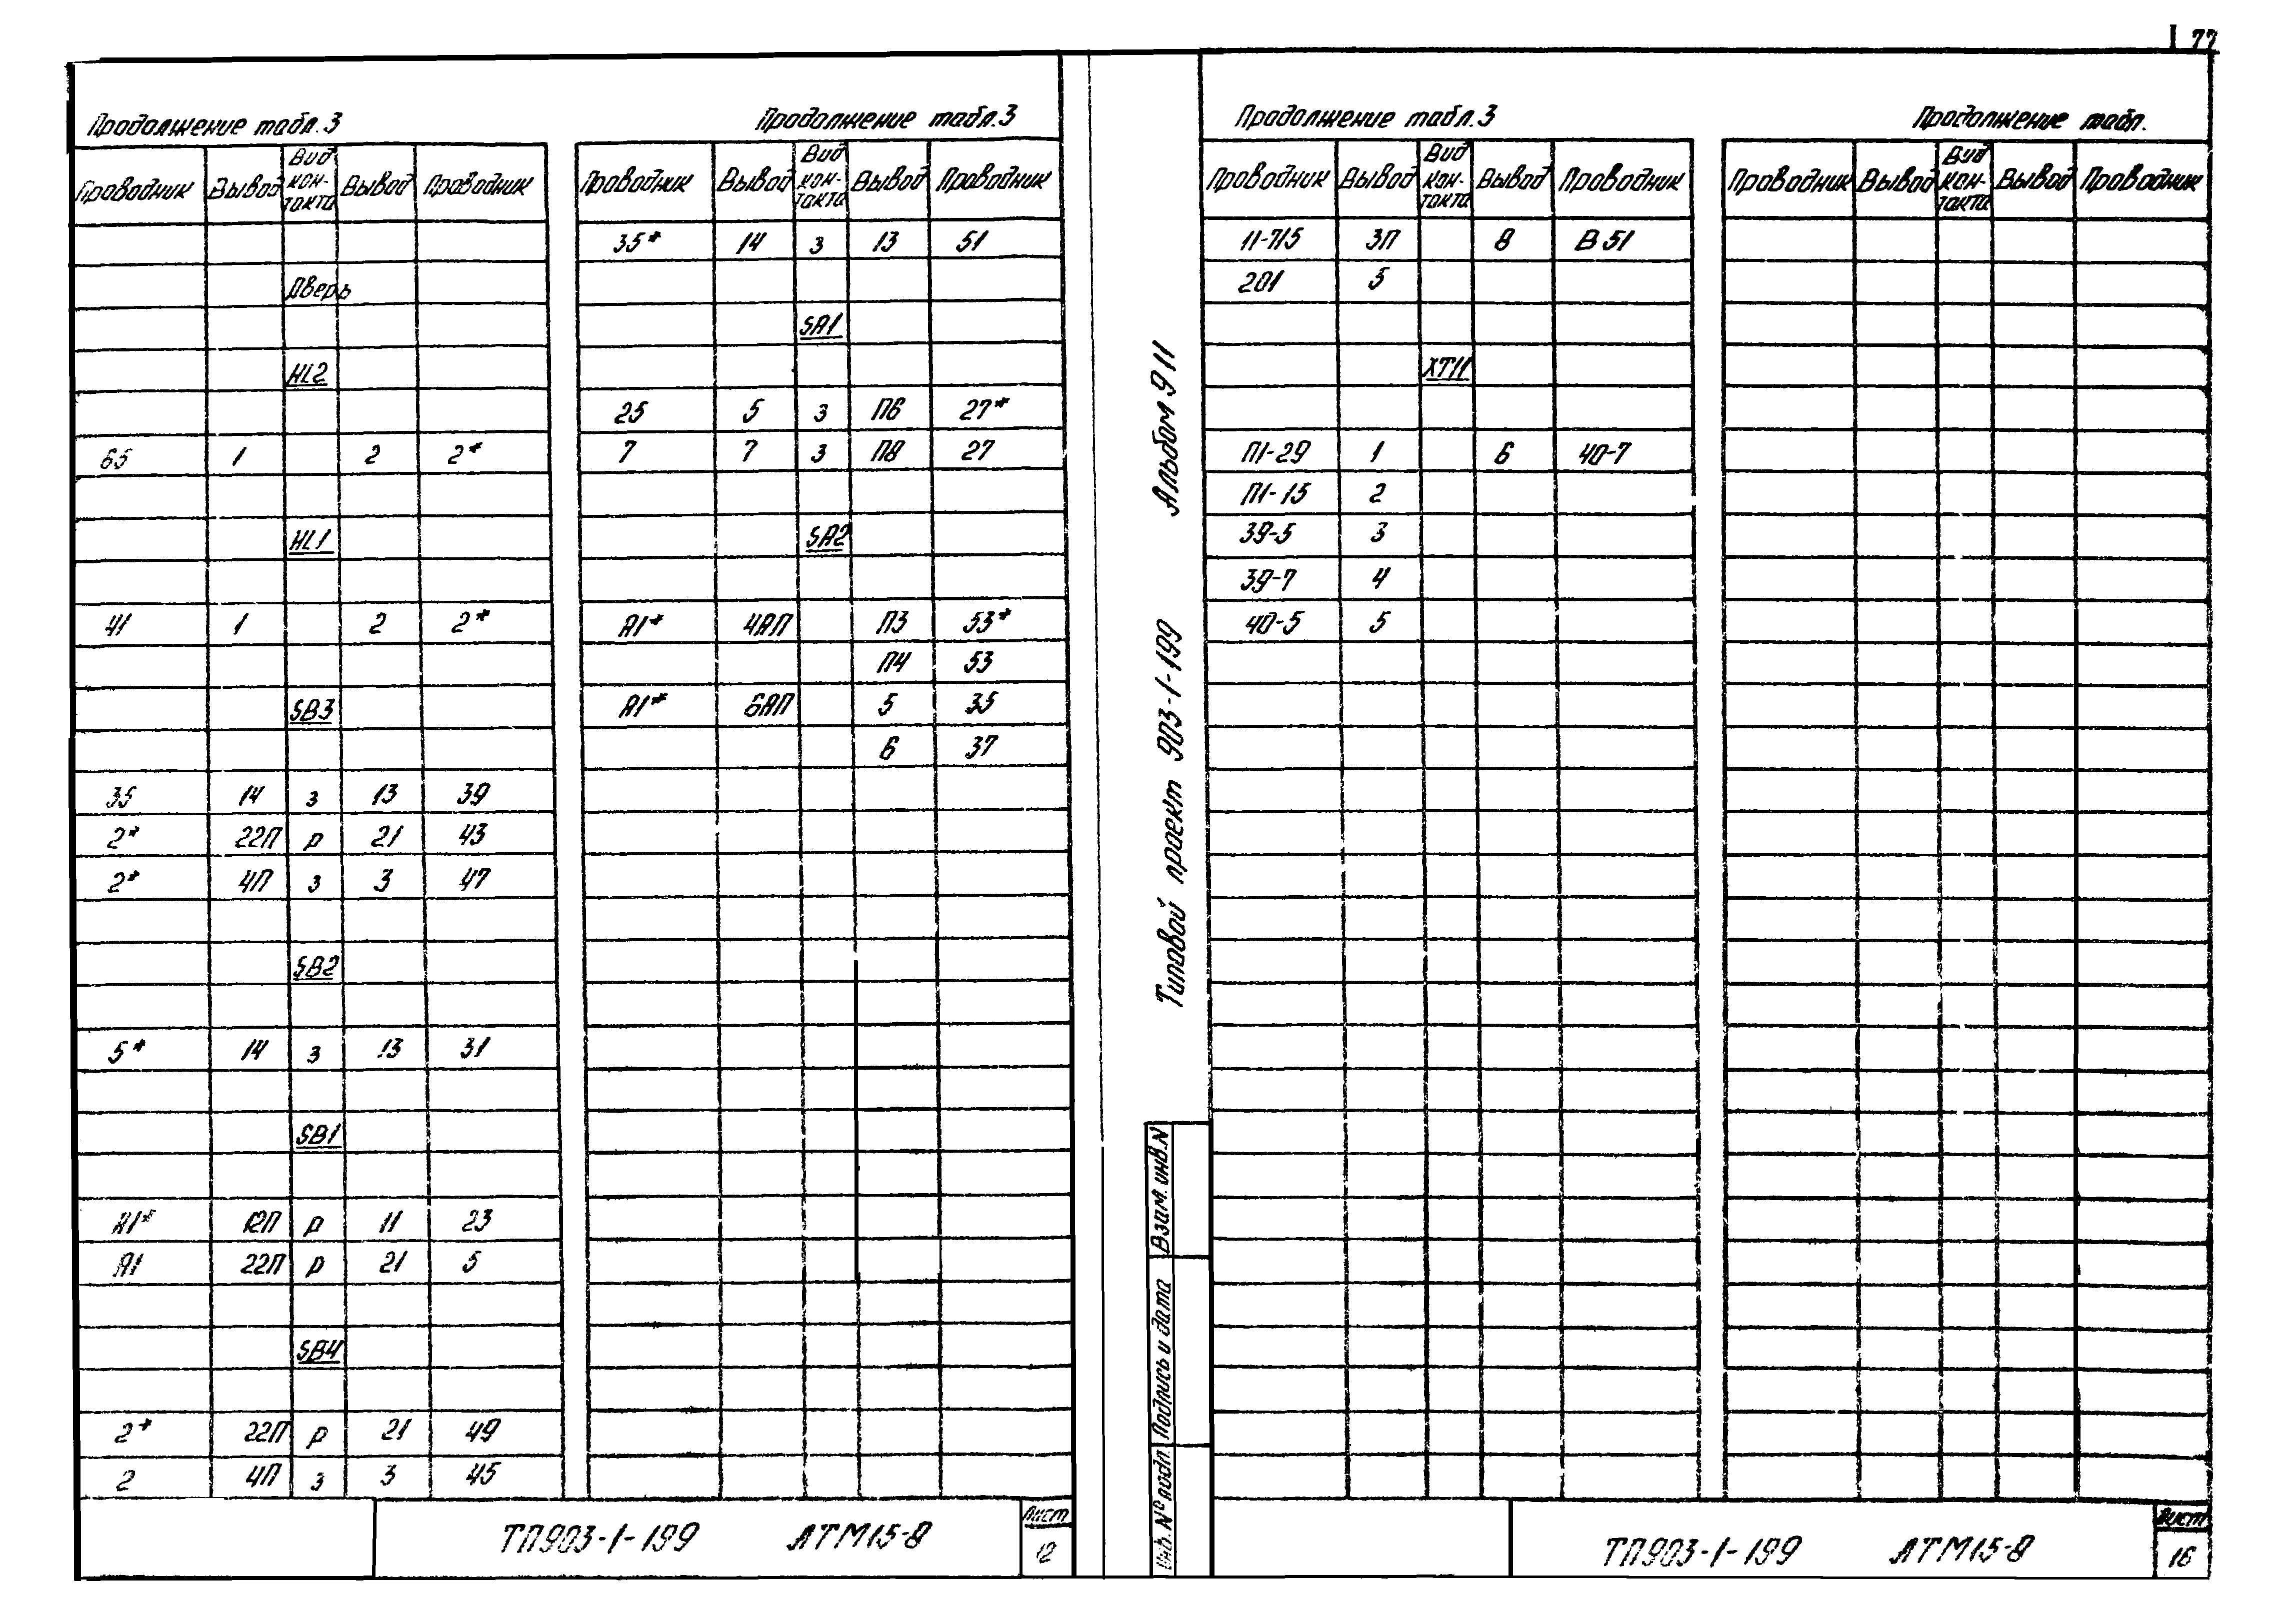 I 77
Продолжение табл.3
Проводник Вывод Вид кон-такта Вывод Проводник
Дверь
HL2
65 1 2 2*
HL1
41 1 2 2*
SB3
35 14 з 13 39
2* 22П р 21 43
2* 4П з 3 47
SB2
5* 14 з 13 31
SB1
А1* 12П р 11 23
А1 22П р 21 5
SB4
2* 22П р 21 49
2 4П з 3 45
Продолжение табл.3
Проводник Вывод Вид кон-такта Вывод Проводник
35* 14 з 13 51
SA1
25 5 з П6 27*
7 7 з П8 27
SA2
А1* 4АП П3 53*
П4 53
А1* 6АП 5 35
6 37
ТП903-1-199 АТМ15-8
Лист
12
Альбом 9 11
Типовой проект 903-1-199
Взам. инв.N
Подпись и дата
Инв. N° подл
Продолжение табл.3
Проводник Вывод Вид кон-такта Вывод Проводник
11-715 3П 8 В51
201 5
XT11
П1-29 1 6 40-7
П1-15 2
39-5 3
39-7 4
40-5 5
Продолжение табл.
Проводник Вывод Вид кон-такта Вывод Проводник
ТП903-1-199 АТМ15-8
Лист
16